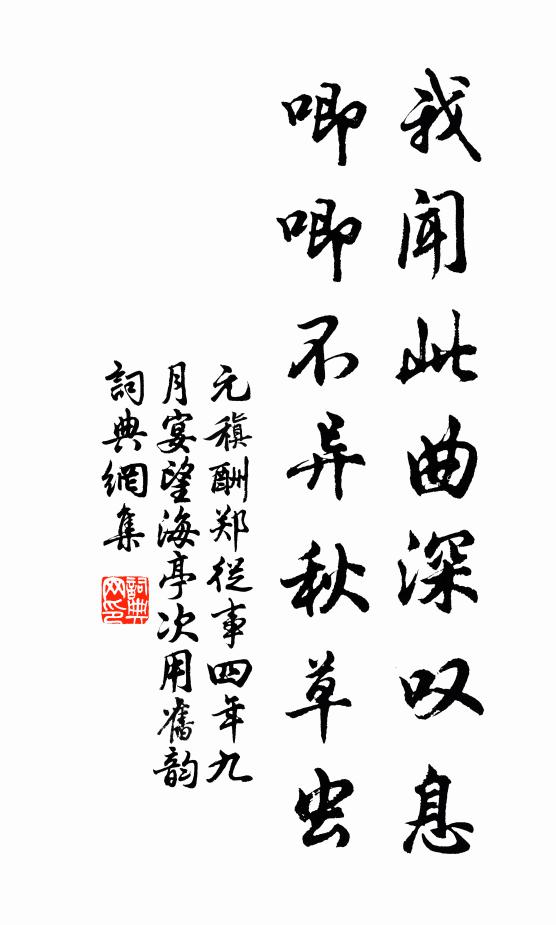 我闻此曲深叹息
唧唧不异秋草虫
元稹酬郑从事四年九
月宴望海亭次用舊韵
詞典網集
詞典网印